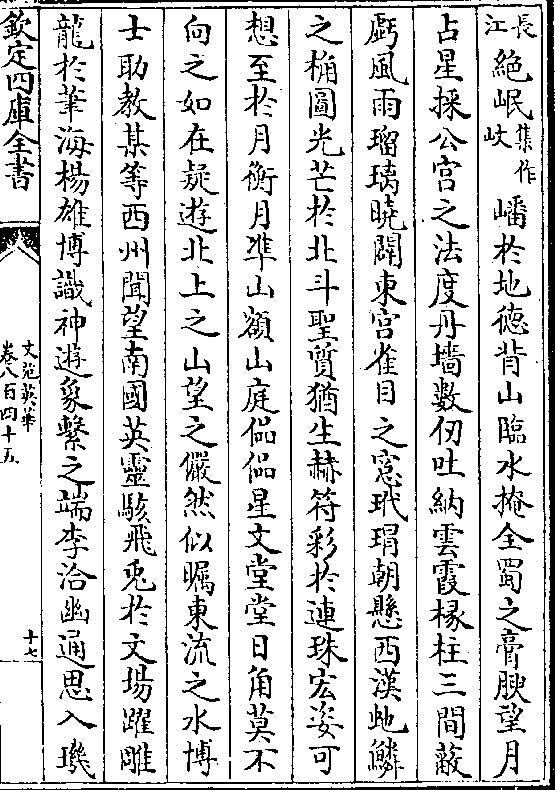 長江絶岷集作岐嶓於地徳背山臨水掩全蜀之膏腴望月
占星採公宫之法度丹墻數仞吐納雲霞椽柱三間蔽
虧風雨瑠璃曉闢東宫雀目之窻玳瑁朝懸西漢虵鱗
之桷圖光芒於北斗聖質猶生赫符彩於連珠宏姿可
想至於月衡月凖山額山庭偘偘星文堂堂日角莫不
向之如在疑遊北上之山望之儼然似矚東流之水博
士助教某等西州聞望南國英靈駭飛兎於文場躍雕
龍於筆海楊雄博識神遊象繫之端李洽幽通思入璣
欽定四庫全書
文苑英華
卷八百四十五
十七